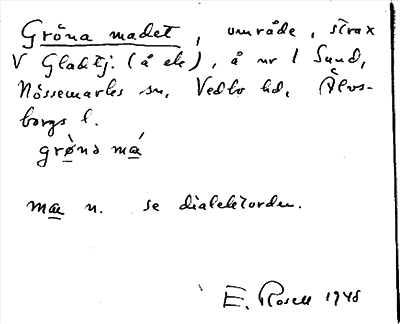 Gröna madet, område, strax
V Gladtj. (å ek), å nr 1 Sund,
Nössemarks sn, Vedbo hd, Älvs-
borgs l.
grǿnɔ má
ma n. se dialektorden.
E. Rosell 1948